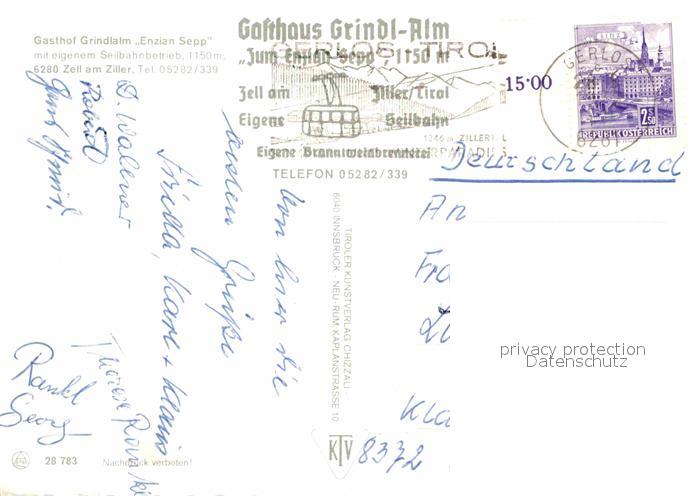 Gasthof Grindlalm „Enzian Sepp"
mit eigenem Seilbahnbetrieb, 1150m,
6280 Zell am Ziller, Tel. 05282/339
Gasthaus Grindl-Alm
„Zum Enzian Sepp", 1150 m
Zell am Ziller/Tirol
Eigene Seilbahn
Eigene Branntweinbrennerei
TELEFON 05282/339
GERLOS TIROL
1246 m ZILLERTAL
15·00
GERLOS
6281
LINZ
2.50
REPUBLIK ÖSTERREICH
Deutschland
An
Fra
Kla
8372
Von hier die
Grüße
Frieda, Karl + Klaus
D. Wallner
Robert
Therese
Rankl
Georg
TIROLER KUNSTVERLAG CHIZZALI
6040 INNSBRUCK - NEU-RUM, KAPLANSTRASSE 10
KTV
28 783 Nachdruck verboten!
privacy protection
Datenschutz